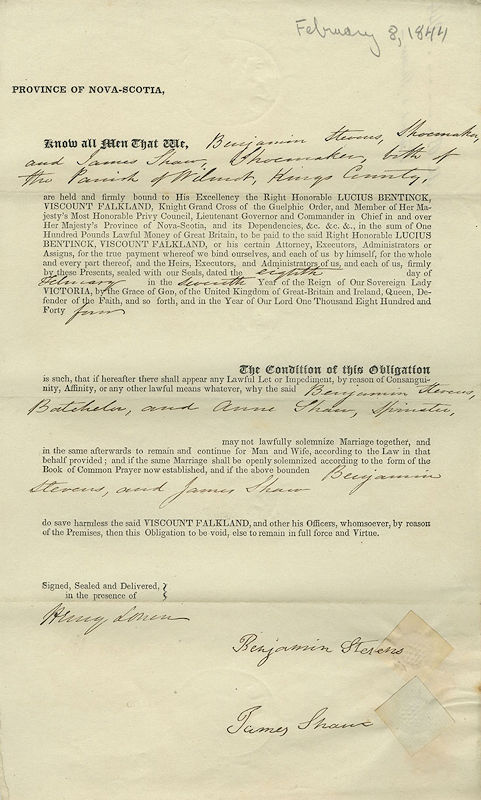 February 8, 1844
PROVINCE OF NOVA-SCOTIA,
Know all Men That We, Benjamin Stevens, Shoemaker,
and James Shaw, Shoemaker, both of
the Parish of Wilmot, Kings County,
are held and firmly bound to His Excellency the Right Honorable LUCIUS BENTINCK,
VISCOUNT FALKLAND, Knight Grand Cross of the Guelphic Order, and Member of Her Ma-
jesty's Most Honorable Privy Council, Lieutenant Governor and Commander in Chief in and over
Her Majesty's Province of Nova-Scotia, and its Dependencies, &c. &c. &., in the sum of One
Hundred Pounds Lawful Money of Great Britain, to be paid to the said Right Honorable LUCIUS
BENTINCK, VISCOUNT FALKLAND, or his certain Attorney, Executors, Administrators or
Assigns, for the true payment whereof we bind ourselves, and each of us by himself, for the whole
and every part thereof, and the Heirs, Executors, and Administrators of us, and each of us, firmly
by these Presents, sealed with our Seals, dated the eighth day of
February in the seventh Year of the Reign of Our Sovereign Lady
VICTORIA, by the Grace of GOD, of the United Kingdom of Great-Britain and Ireland, Queen, De-
fender of the Faith, and so forth, and in the Year of Our Lord One Thousand Eight Hundred and
Forty four
The Condition of this Obligation
is such, that if hereafter there shall appear any Lawful Let or Impediment, by reason of Consangui-
nity, Affinity, or any other lawful means whatever, why the said Benjamin Stevens,
Batchelor, and Anne Shaw, Spinster,
may not lawfully solemnize Marriage together, and
in the same afterwards to remain and continue for Man and Wife, according to the Law in that
behalf provided; and if the same Marriage shall be openly solemnized according to the form of the
Book of Common Prayer now established, and if the above bounden Benjamin
Stevens, and James Shaw
do save harmless the said VISCOUNT FALKLAND, and other his Officers, whomsoever, by reason
of the Premises, then this Obligation to be void, else to remain in full force and Virtue.
Signed, Sealed and Delivered,
in the presence of
Henry
Benjamin Stevens
James Shaw